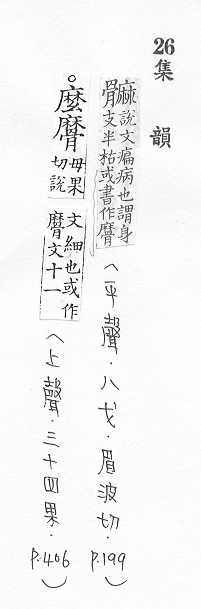 26集韻
䯢說文㾫病也謂身支半枯或書作髍（平聲．八戈．眉波切．P.199）
。麼髍母果切說文細也或作髍文十一（上聲．三十四果．P.406）